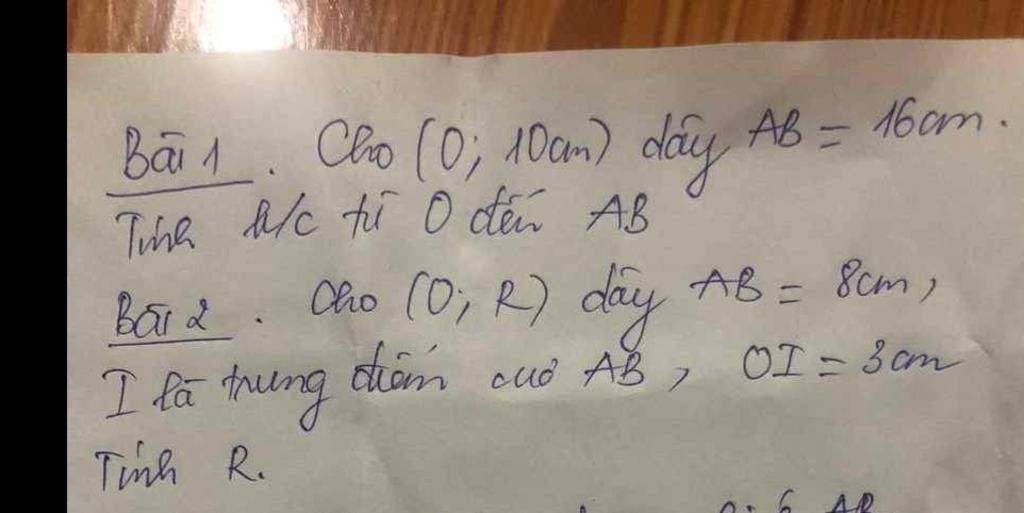 Bài 1. Cho (O; 10cm) dây AB = 16cm.
Tính k/c từ O đến AB
Bài 2. Cho (O; R) dây AB = 8cm,
I là trung điểm của AB, OI = 3cm
Tính R.
AB